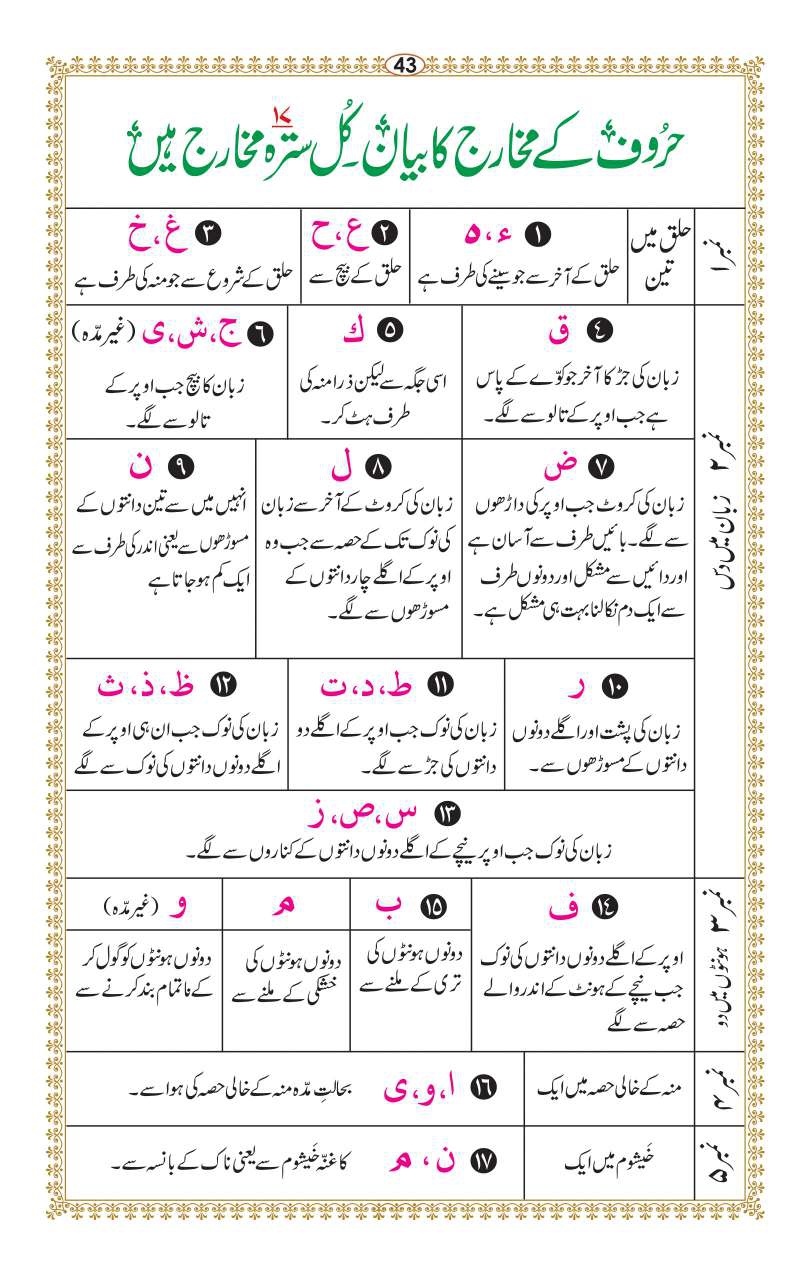 43
حرُوف کے مخارج کا بیان۔ کُل سترہ مخارج ہیں
۱۷
نمبر ۱
حلق میں
تین
۱ ء،ہ
حلق کے آخر سے جو سینے کی طرف ہے
۲ ع،ح
حلق کے بیچ سے
۳ غ،خ
حلق کے شروع سے جو منہ کی طرف ہے
نمبر ۲ زبان میں دس
٤ ق
زبان کی جڑ کا آخر جو کوّے کے پاس
ہے جب اوپر کے تالو سے لگے۔
۵ ك
اسی جگہ سے لیکن ذرا منہ کی
طرف ہٹ کر۔
٦ ج،ش،ی (غیر مدّہ)
زبان کا بیچ جب اوپر کے
تالو سے لگے۔
۷ ض
زبان کی کروٹ جب اوپر کی داڑھوں
سے لگے۔ بائیں طرف سے آسان ہے
اور دائیں سے مشکل اور دونوں طرف
سے ایک دم نکالنا بہت ہی مشکل ہے۔
۸ ل
زبان کی کروٹ کے آخر سے زبان
کی نوک تک کے حصہ سے جب وہ
اوپر کے اگلے چار دانتوں کے
مسوڑھوں سے لگے۔
۹ ن
انہیں میں سے تین دانتوں کے
مسوڑھوں سے یعنی اندر کی طرف سے
ایک کم ہو جاتا ہے
۱۰ ر
زبان کی پشت اور اگلے دونوں
دانتوں کے مسوڑھوں سے۔
۱۱ ط،د،ت
زبان کی نوک جب اوپر کے اگلے دو
دانتوں کی جڑ سے لگے۔
۱۲ ظ،ذ،ث
زبان کی نوک جب ان ہی اوپر کے
اگلے دونوں دانتوں کی نوک سے لگے
۱۳ س،ص،ز
زبان کی نوک جب اوپر نیچے کے اگلے دونوں دانتوں کے کناروں سے لگے۔
نمبر ۳ ہونٹوں میں دو
١٤ ف
اوپر کے اگلے دونوں دانتوں کی نوک
جب نیچے کے ہونٹ کے اندر والے
حصہ سے لگے
۱۵ ب
دونوں ہونٹوں کی
تری کے ملنے سے
م
دونوں ہونٹوں کی
خشکی کے ملنے سے
و (غیر مدّہ)
دونوں ہونٹوں کو گول کر
کے ناتمام بند کرنے سے
نمبر ۴
منہ کے خالی حصہ میں ایک
۱٦ ا،و،ی
بحالتِ مدّہ منہ کے خالی حصہ کی ہوا سے۔
نمبر ۵
خَیشوم میں ایک
۱۷ ن،م
کا غنّہ خَیشوم سے یعنی ناک کے بانسہ سے۔